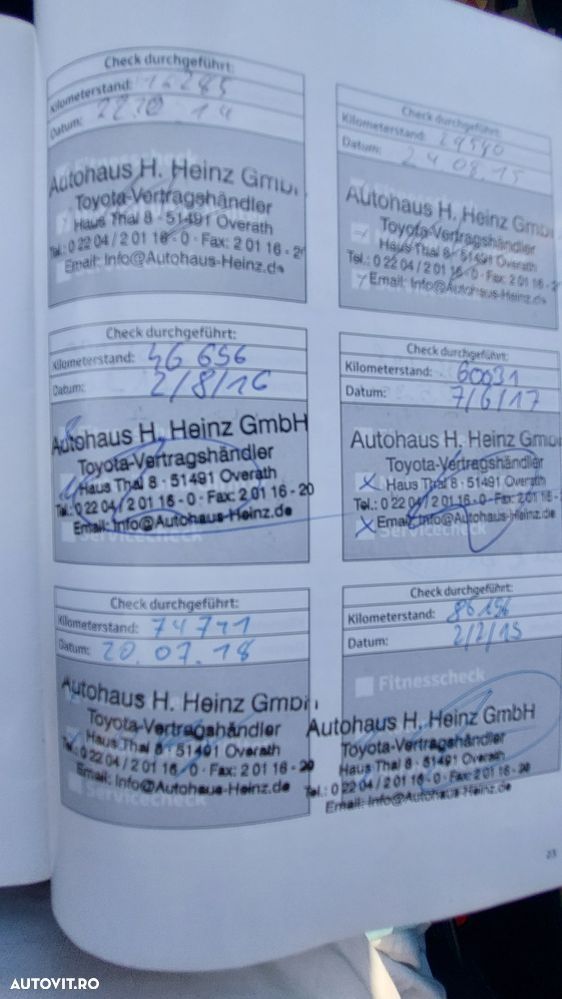 Check durchgeführt:
Kilometerstand: 14285
Datum: 22.10.14
Autohaus H. Heinz Gmb
Toyota-Vertragshändler
Haus Thal 8 · 51491 Overath
Tel.: 0 22 04 / 2 01 16 - 0 · Fax: 2 01 16 - 2
Email: Info@Autohaus-Heinz.de
Check durchgeführt:
Kilometerstand: 29540
Datum: 24.08.15
Autohaus H. Heinz Gmb
Toyota-Vertragshändler
Haus Thal 8 · 51491 Overath
Tel.: 0 22 04 / 2 01 16 - 0 · Fax: 2 01 16 - 2
Email: Info@Autohaus-Heinz.de
Check durchgeführt:
Kilometerstand: 46 656
Datum: 2/8/16
Autohaus H. Heinz GmbH
Toyota-Vertragshändler
Haus Thal 8 · 51491 Overath
Tel.: 0 22 04 / 2 01 16 - 0 · Fax: 2 01 16 - 20
Email: Info@Autohaus-Heinz.de
Servicecheck
Check durchgeführt:
Kilometerstand: 60631
Datum: 7/6/17
Autohaus H. Heinz Gmb
Toyota-Vertragshändler
Haus Thal 8 · 51491 Overath
Tel.: 0 22 04 / 2 01 16 - 0 · Fax: 2 01 16 -
Email: Info@Autohaus-Heinz.de
Servicecheck
Check durchgeführt:
Kilometerstand: 74771
Datum: 20.07.18
Autohaus H. Heinz Gmb
Toyota-Vertragshändler
Haus Thal 8 · 51491 Overath
Tel.: 0 22 04 / 2 01 16 - 0 · Fax: 2 01 16 - 20
Email: Info@Autohaus-Heinz.de
Servicecheck
Check durchgeführt:
Kilometerstand: 86156
Datum: 2/2/19
Fitnesscheck
Autohaus H. Heinz GmbH
Toyota-Vertragshändler
Haus Thal 8 · 51491 Overath
Tel.: 0 22 04 / 2 01 16 - 0 · Fax: 2 01 16 - 20
Email: Info@Autohaus-Heinz.de
AUTOVIT.RO